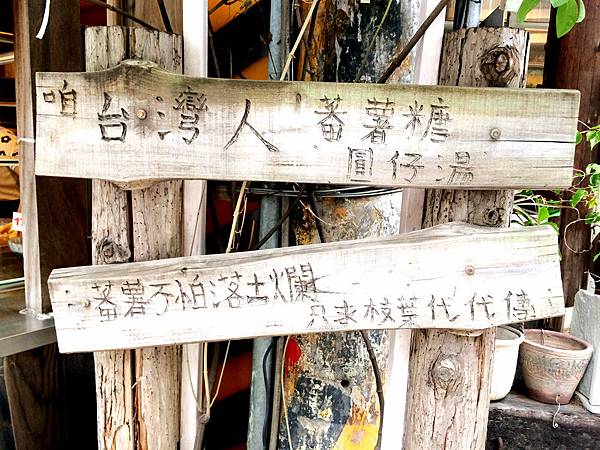 咱台灣人 蕃薯糖
圓仔湯
蕃薯不怕落土爛
只求枝葉代代傳